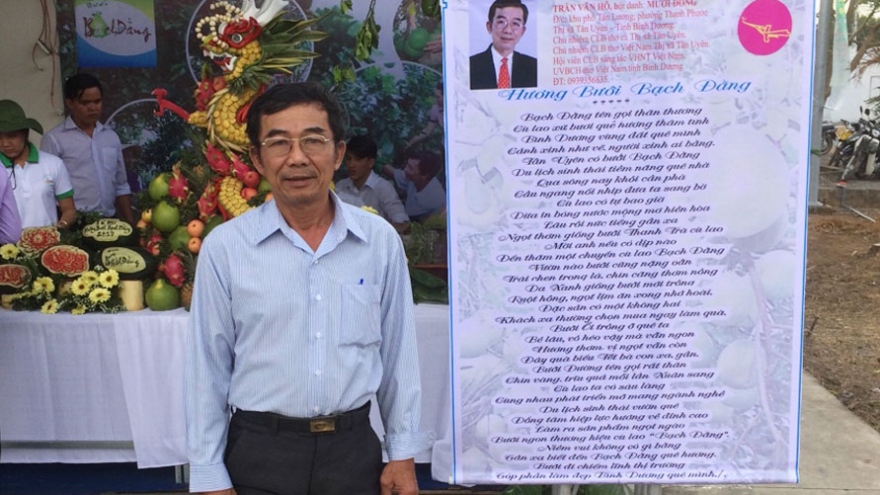 Bưởi
Bạch Đằng
TRẦN VĂN HỔ, bút danh: MƯỜI ĐỜN
Đ/c: khu phố Tân Lương, phường Thạnh Phước
Thị xã Tân Uyên - Tỉnh Bình Dương.
Chủ nhiệm CLB thơ ca Thị xã Tân Uyên
Chủ nhiệm CLB thơ Việt Nam Thị xã Tân Uyên
Hội viên CLB sáng tác VHNT Việt Nam.
UVBCH thơ Việt Nam tỉnh Bình Dương
ĐT: 0939356635
Hương Bưởi Bạch Đằng
*****
Bạch Đằng tên gọi thân thương
Cù lao xứ bưởi quê hương thắm tình
Bình Dương vùng đất quê mình
Cảnh xinh như vẽ, người xinh ai bằng.
Tân Uyên có bưởi Bạch Đằng
Du lịch sinh thái tiềm năng quê nhà
Qua sông nay khỏi cần phà
Cần ngang nối nhịp đưa ta sang bờ
Cù lao có tự bao giờ
Dừa in bóng nước mộng mơ hiền hòa
Lâu rồi nức tiếng gần xa
Ngọt thơm giống bưởi Thanh Trà cù lao
Mời anh nếu có dịp nào
Đến thăm một chuyến cù lao Bạch Đằng
Vườn nào bưởi cũng nặng oằn
Trái chen trong lá, chín căng thơm nồng
Da Xanh giống bưởi mới trồng
Ruột hồng, ngọt lịm ăn xong nhớ hoài,
Đặc sản có một không hai
Khách xa thường chọn mua ngay làm quà.
Bưởi Ổi trồng ở quê ta
Bẻ lâu, vỏ héo vậy mà vẫn ngon
Hương thơm, vị ngọt vẫn còn
Đây quà biếu Tết bà con xa, gần.
Bưởi Đường tên gọi rất thân
Chín vàng, trĩu quả mỗi lần Xuân sang
Cù lao ta có sáu làng
Cùng nhau phát triển mở mang ngành nghề
Du lịch sinh thái vườn quê
Đồng tâm hiệp lực hướng về đỉnh cao
Làm ra sản phẩm ngọt ngào
Bưởi ngon thương hiệu cù lao "Bạch Đằng".
Niềm vui không có gì bằng
Gần xa biết đến Bạch Đằng quê hương.
Bưởi đi chiếm lĩnh thị trường
Góp phần làm đẹp Bình Dương quê mình./.